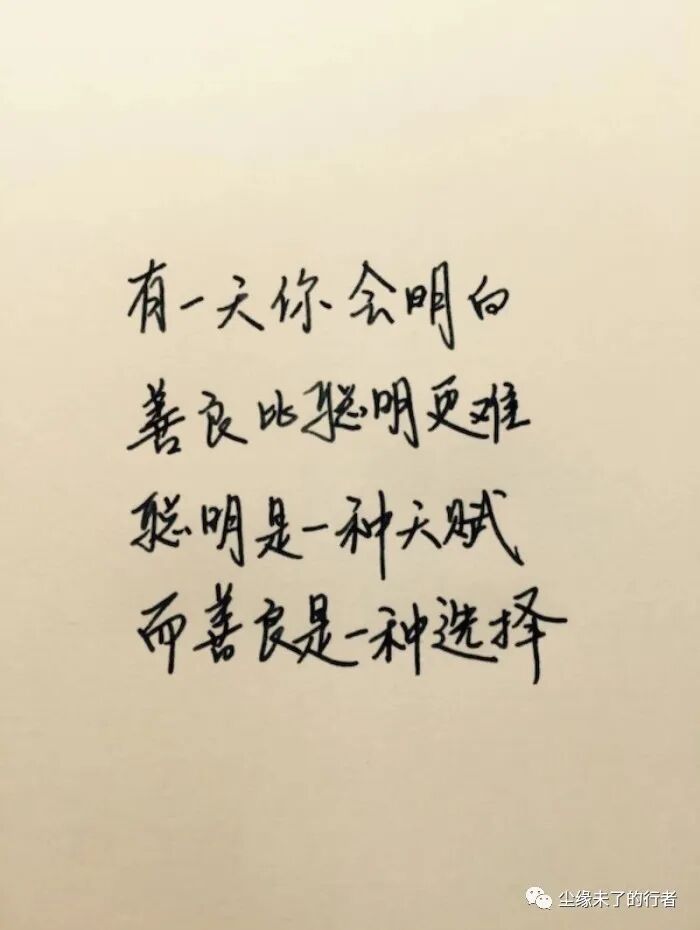 有一天你会明白
善良比聪明更难
聪明是一种天赋
而善良是一种选择
尘缘未了的行者